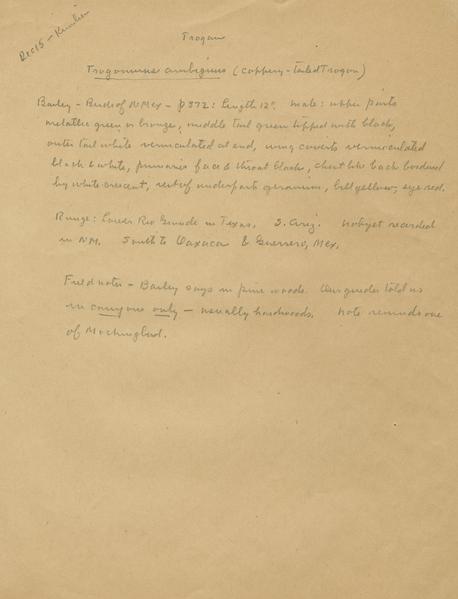 Dec 15 -
Trogon
Trogonurus ambiguus (coppery-tailed Trogon)
Bailey - Birds of N Mex - p 372: Length 12". male: upper parts
metallic green or bronze, middle tail green tipped with black,
outer tail white vermiculated at end, wing coverts vermiculated
black & white, primaries face & throat black, chest like back bordered
by white crescent, rest of underparts geranium, bill yellow, eye red.
Range: Lower Rio Grande in Texas, S. Ariz. not yet recorded
in N.M. South to Oaxaca & Guerrero, Mex.
Field notes - Bailey says in pine woods. Our guides told us
in canyons only - usually hardwoods. Note reminds one
of Mockingbird.